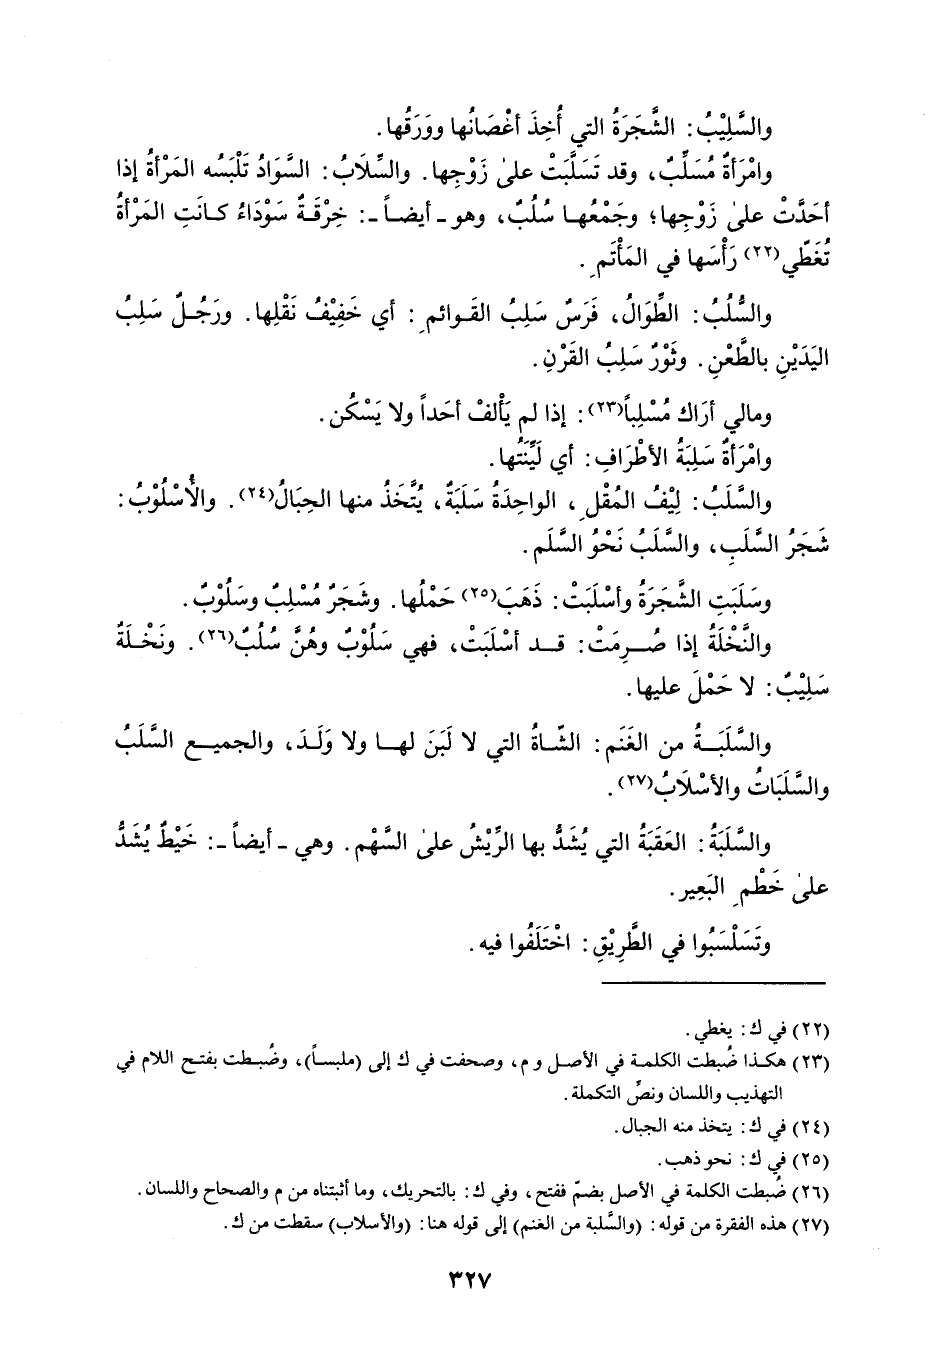 والسَّلِيْبُ: الشَّجَرَةُ التي أُخِذَ أغْصَانُها ووَرَقُها.
وامْرَأةٌ مُسَلِّبٌ، وقد تَسَلَّبَتْ علىٰ زَوْجِها. والسِّلَابُ: السَّوَادُ تَلْبَسُه المَرْأةُ إذا
أحَدَّتْ علىٰ زَوْجِها؛ وجَمْعُها سُلُبٌ، وهو ـ أيضاً ـ: خِرْقَةٌ سَوْدَاءُ كانَتِ المَرْأةُ
تُغَطِّي(٢٢) رَأْسَها في المَأْتَمِ.
والسُّلُبُ: الطِّوَالُ، فَرَسٌ سَلِبُ القَوائمِ: أي خَفِيْفُ نَقْلِها. ورَجُلٌ سَلِبُ
اليَدَيْنِ بالطَّعْنِ. وثَوْرٌ سَلِبُ القَرْنِ.
ومالي أرَاك مُسْلِباً(٢٣): إذا لم يَأْلَفْ أحَداً ولا يَسْكُن.
وامْرَأةٌ سَلِبَةُ الأطْرَافِ: أي لَيِّنَتُها.
والسَّلَبُ: لِيْفُ المُقْلِ، الواحِدَةُ سَلَبَةٌ، يُتَّخَذُ منها الحِبَالُ(٢٤). والأُسْلُوْبُ:
شَجَرُ السَّلَبِ، والسَّلَبُ نَحْوُ السَّلَمِ.
وسَلَبَتِ الشَّجَرَةُ وأسْلَبَتْ: ذَهَبَ(٢٥) حَمْلُها. وشَجَرٌ مُسْلِبٌ وسَلُوْبٌ.
والنَّخْلَةُ إذا صُرِمَتْ: قد أسْلَبَتْ، فهي سَلُوْبٌ وهُنَّ سُلُبٌ(٢٦). ونَخْلَةٌ
سَلِيْبٌ: لا حَمْلَ عليها.
والسَّلَبَةُ من الغَنَمِ: الشّاةُ التي لا لَبَنَ لها ولا وَلَدَ، والجميع السَّلَبُ
والسَّلَبَاتُ والأسْلَابُ(٢٧).
والسَّلَبَةُ: العَقَبَةُ التي يُشَدُّ بها الرِّيْشُ علىٰ السَّهْمِ. وهي ـ أيضاً ـ: خَيْطٌ يُشَدُّ
علىٰ خَطْمِ البَعِيرِ.
وتَسَلْسَبُوا في الطَّرِيْقِ: اخْتَلَفُوا فيه.
(٢٢) في ك: يغطي.
(٢٣) هكذا ضُبطت الكلمة في الأصل و م، وصحفت في ك إلى (ملبساً)، وضُبطت بفتح اللام في
التهذيب واللسان ونصِّ التكملة.
(٢٤) في ك: يتخذ منه الجبال.
(٢٥) في ك: نحو ذهب.
(٢٦) ضُبطت الكلمة في الأصل بضمّ ففتح، وفي ك: بالتحريك، وما أثبتناه من م والصحاح واللسان.
(٢٧) هذه الفقرة من قوله: (والسَّلبة من الغنم) إلى قوله هنا: (والأسلاب) سقطت من ك.
٣٢٧